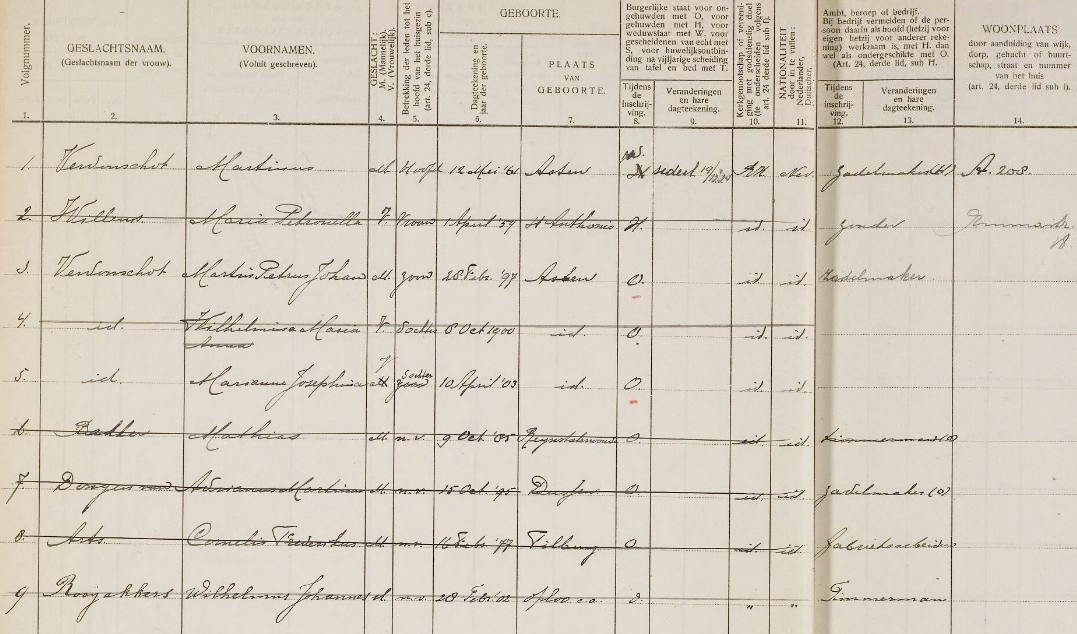 Volgnummer.
GESLACHTSNAAM.
(Geslachtsnaam der vrouw).
VOORNAMEN.
(Voluit geschreven).
GESLACHT:
M. (Mannelijk).
V. (Vrouwelijk).
Betrekking der leden tot het
hoofd van het huisgezin
(art. 24, derde lid, sub c).
GEBOORTE.
Dagteekening en
jaar der geboorte.
PLAATS
VAN
GEBOORTE.
Burgerlijke staat voor on-
gehuwden met O, voor
gehuwden met H, voor
weduwstaat met W, voor
gescheidenen van echt met
S, voor huwelijksontbin-
ding na vijfjarige scheiding
van tafel en bed met T.
Tijdens
de
inschrij-
ving.
Veranderingen
en hare
dagteekening.
Kerkgenootschap of vereeni-
ging met godsdienstig doel
(te onderscheiden volgens
art. 24 derde lid sub f).
NATIONALITEIT
door in te vullen:
Nederlander,
Duitscher,
Ambt, beroep of bedrijf.
Bij bedrijf vermelden of de per-
soon daarin als hoofd (hetzij voor
eigen hetzij voor anderer reke-
ning) werkzaam is, met H. dan
wel als ondergeschikte met O.
(Art. 24, derde lid, sub H.
Tijdens
de
inschrij-
ving.
Veranderingen
en hare
dagteekening.
WOONPLAATS
door aanduiding van wijk,
dorp, gehucht of buurt-
schap, straat en nummer
van het huis
(art. 24, derde lid sub i).
1. 2. 3. 4. 5. 6. 7. 8. 9. 10. 11. 12. 13. 14.
1. Verdonschot Martinus M Hoofd 12 Mei '61 Asten H sedert RK Ned. Zadelmaker (H) A. 208.
2. Willems Maria Petronella V. Vrouw 1 April '59 St Anthonis H. id. id zonder
3. Verdonschot Martin Petrus Johan M. zoon 28 Feb. '97 Asten O. id. id. Zadelmaker.
4. id. Wilhelmina Maria V. dochter 8 Oct 1900 id. O. id. id.
Anna
5. id. Marianne Josephina V dochter 10 April '03 id. O. id. id.
6. Bakker Mathias M. n.v. 9 Oct. '05 O. id. id. timmerman (O)
7. Adrianus Martinus M. n.v. 15 Oct. '95 Dussen O. id. id. zadelmaker (O)
8. Arts Cornelis M. n.v. 16 Feb. Tilburg O id. id. fabrieksarbeider
9 Rooijakkers Wilhelmus Johannes M. n.v. 28 Feb. '02 Oploo c.a. O. " " Timmerman